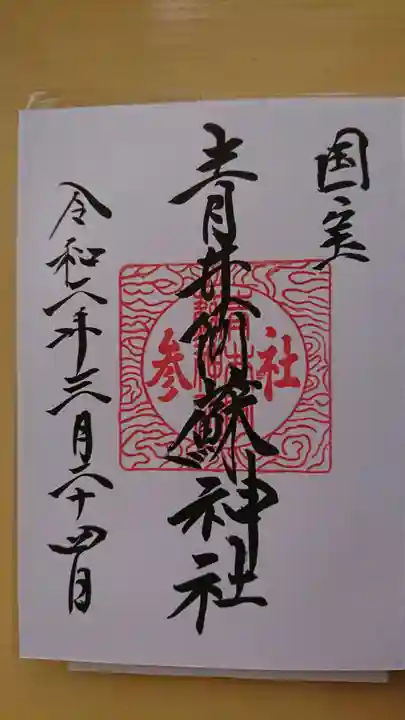 国宝
青井阿蘇神社
参社
令和六年三月二十四日